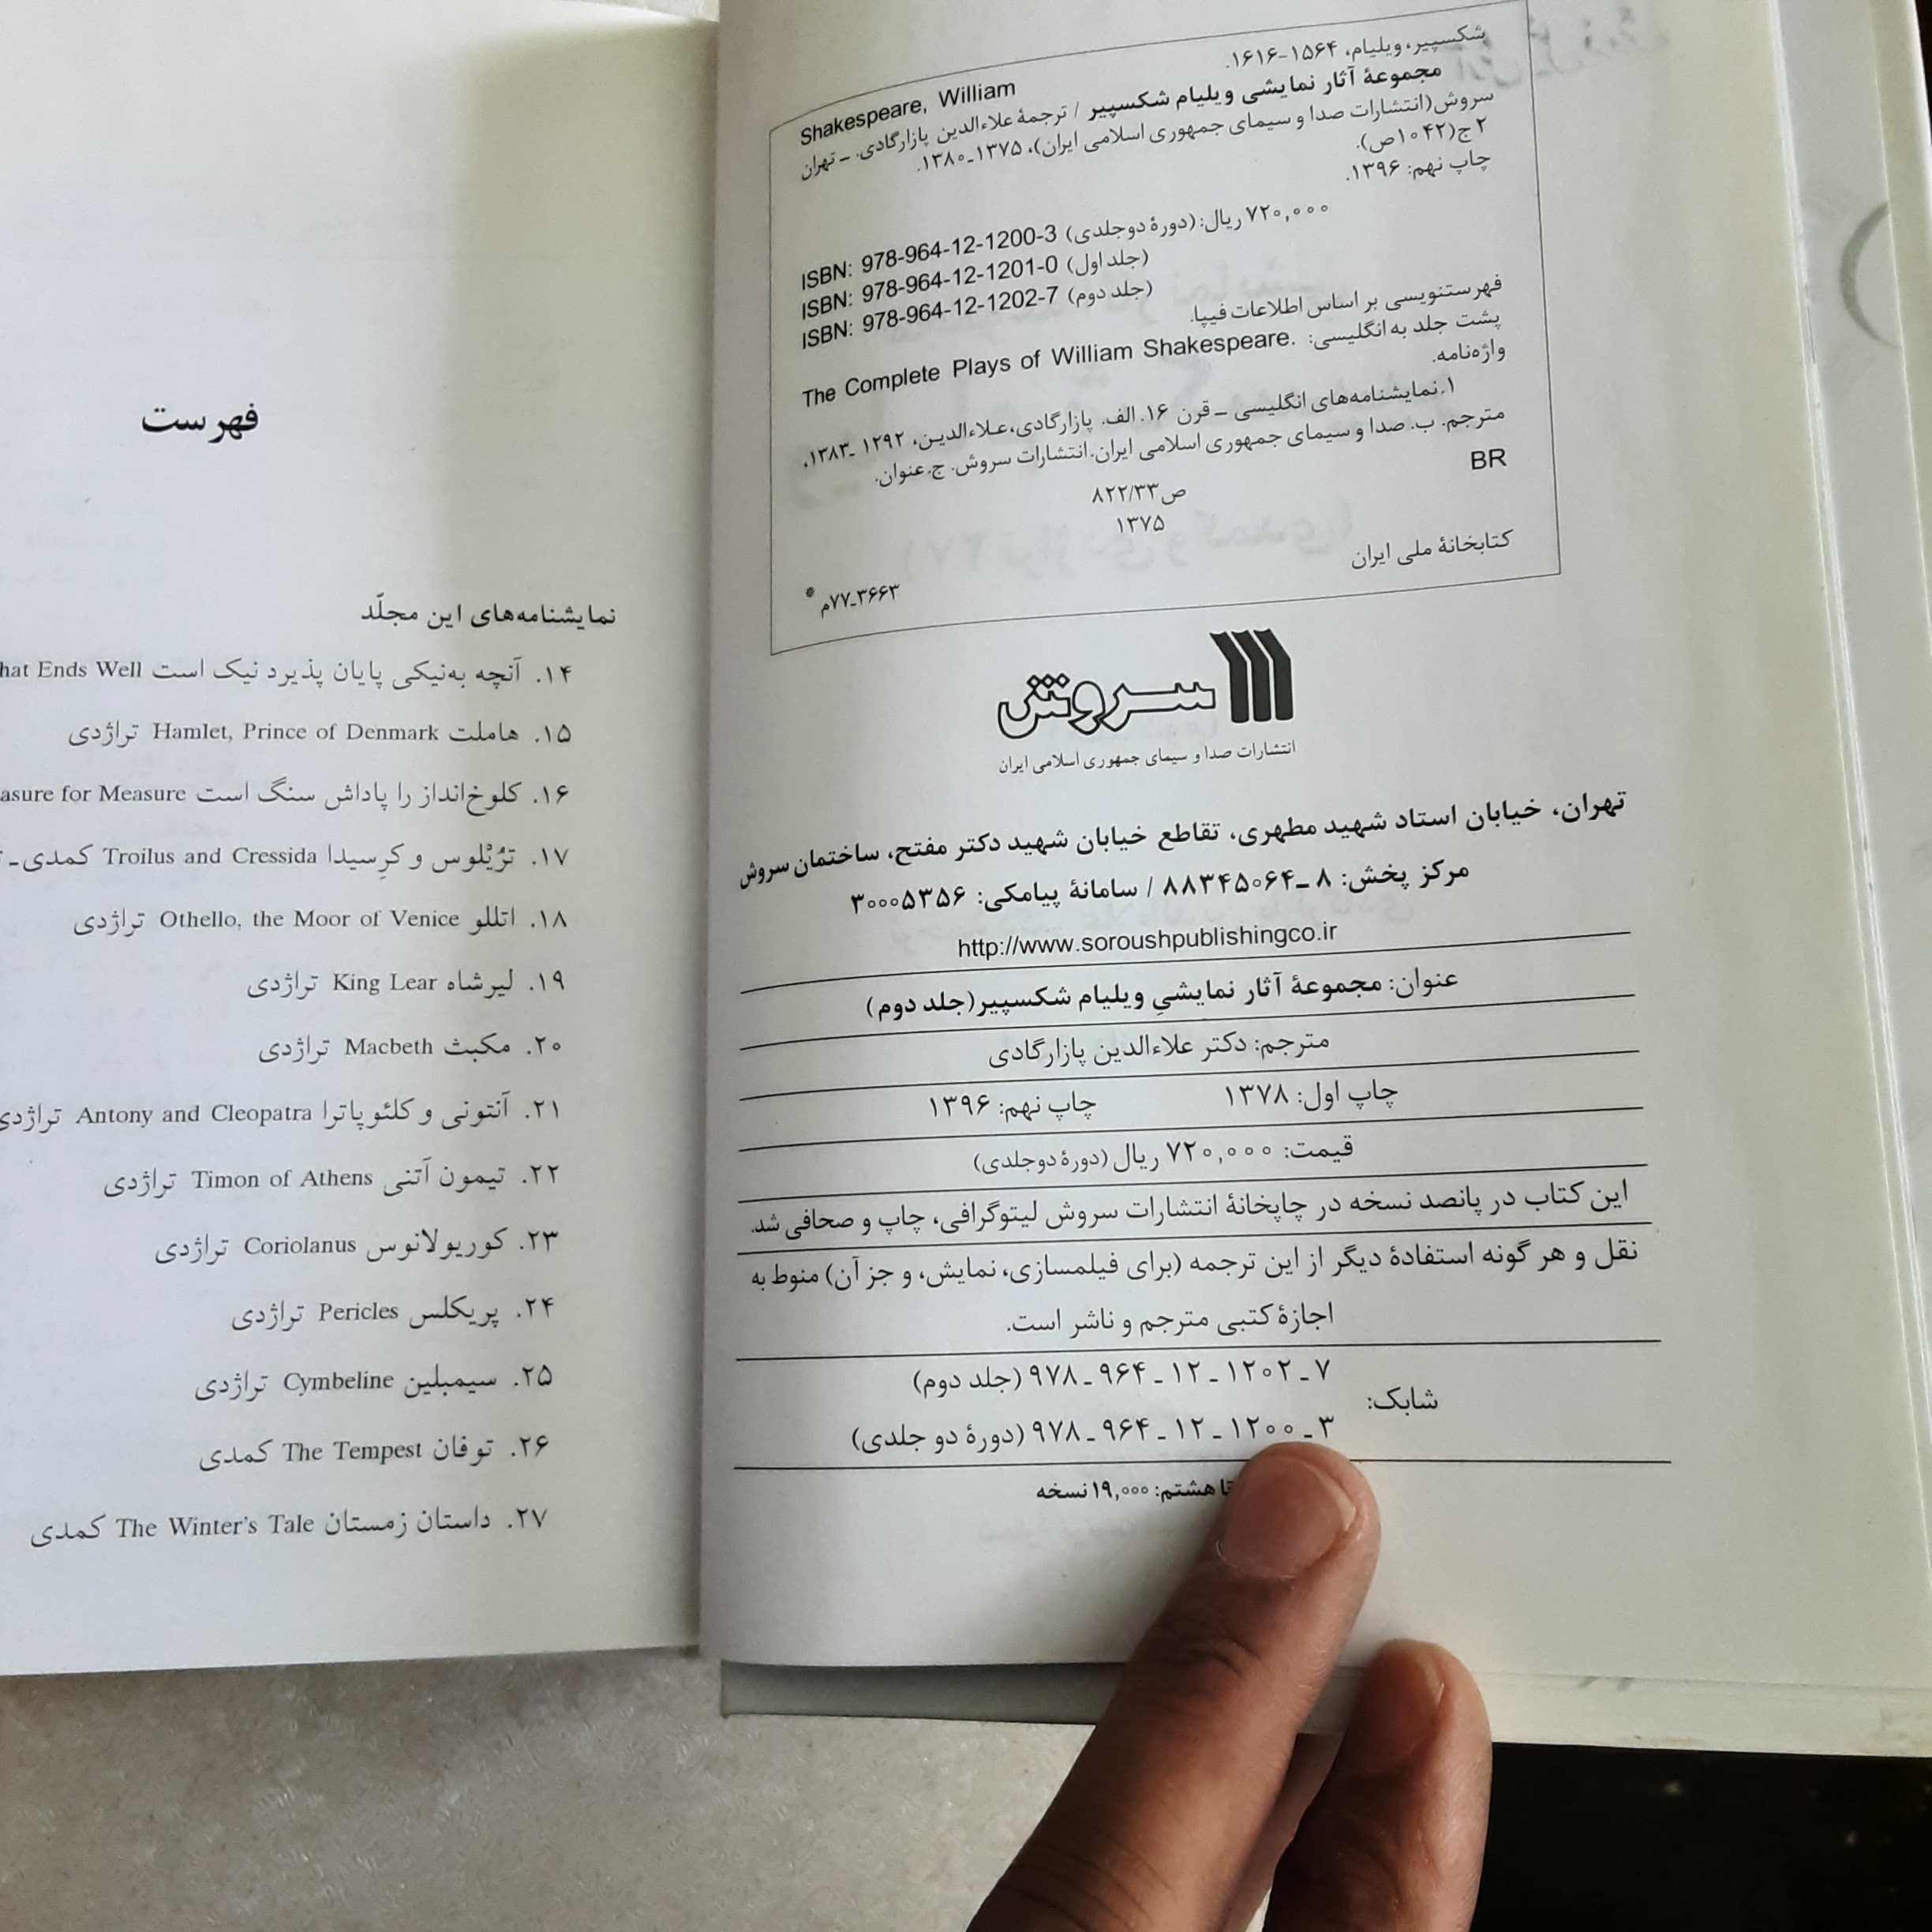 شکسپیر، ویلیام، ۱۵۶۴-۱۶۱۶.
Shakespeare, William
مجموعهٔ آثار نمایشی ویلیام شکسپیر / ترجمهٔ علاءالدین پازارگادی. ـ تهران
سروش(انتشارات صدا و سیمای جمهوری اسلامی ایران)، ۱۳۷۵ـ۱۳۸۰.
۲ ج(۱۰۴۲ص).
چاپ نهم: ۱۳۹۶.
۷۲۰,۰۰۰ ریال: (دورهٔ دوجلدی) ISBN: 978-964-12-1200-3
(جلد اول) ISBN: 978-964-12-1201-0
(جلد دوم) ISBN: 978-964-12-1202-7
فهرستنویسی بر اساس اطلاعات فیپا.
پشت جلد به انگلیسی: The Complete Plays of William Shakespeare.
واژه‌نامه.
۱.نمایشنامه‌های انگلیسی ـ قرن ۱۶. الف. پازارگادی،علاءالدین، ۱۲۹۲ ـ۱۳۸۳،
مترجم. ب. صدا و سیمای جمهوری اسلامی ایران.انتشارات سروش. ج.عنوان.
BR
ص۸۲۲/۳۳
۱۳۷۵
کتابخانهٔ ملی ایران
۳۶۶۳ـ۷۷م
سروش
انتشارات صدا و سیمای جمهوری اسلامی ایران
تهران، خیابان استاد شهید مطهری، تقاطع خیابان شهید دکتر مفتح، ساختمان سروش
مرکز پخش: ۸ ـ۸۸۳۴۵۰۶۴ / سامانهٔ پیامکی: ۳۰۰۰۵۳۵۶
http://www.soroushpublishingco.ir
عنوان: مجموعهٔ آثار نمایشیِ ویلیام شکسپیر(جلد دوم)
مترجم: دکتر علاءالدین پازارگادی
چاپ اول: ۱۳۷۸ چاپ نهم: ۱۳۹۶
قیمت: ۷۲۰,۰۰۰ ریال (دورهٔ دوجلدی)
این کتاب در پانصد نسخه در چاپخانهٔ انتشارات سروش لیتوگرافی، چاپ و صحافی شد.
نقل و هر گونه استفادهٔ دیگر از این ترجمه (برای فیلمسازی، نمایش، و جز آن) منوط به
اجازهٔ کتبی مترجم و ناشر است.
شابک:
۷ ـ ۱۲۰۲ ـ ۱۲ ـ ۹۶۴ ـ ۹۷۸ (جلد دوم)
۳ ـ ۱۲۰۰ ـ ۱۲ ـ ۹۶۴ ـ ۹۷۸ (دورهٔ دو جلدی)
تا هشتم: ۱۹,۰۰۰ نسخه
فهرست
نمایشنامه‌های این مجلّد
۱۴. آنچه به‌نیکی پایان پذیرد نیک است Ends Well
۱۵. هاملت Hamlet, Prince of Denmark تراژدی
۱۶. کلوخ‌انداز را پاداش سنگ است for Measure
۱۷. ترُیْلوس و کرِسیدا Troilus and Cressida کمدی ـ
۱۸. اتللو Othello, the Moor of Venice تراژدی
۱۹. لیرشاه King Lear تراژدی
۲۰. مکبث Macbeth تراژدی
۲۱. آنتونی و کلئوپاترا Antony and Cleopatra تراژدی
۲۲. تیمون آتنی Timon of Athens تراژدی
۲۳. کوریولانوس Coriolanus تراژدی
۲۴. پریکلس Pericles تراژدی
۲۵. سیمبلین Cymbeline تراژدی
۲۶. توفان The Tempest کمدی
۲۷. داستان زمستان The Winter's Tale کمدی